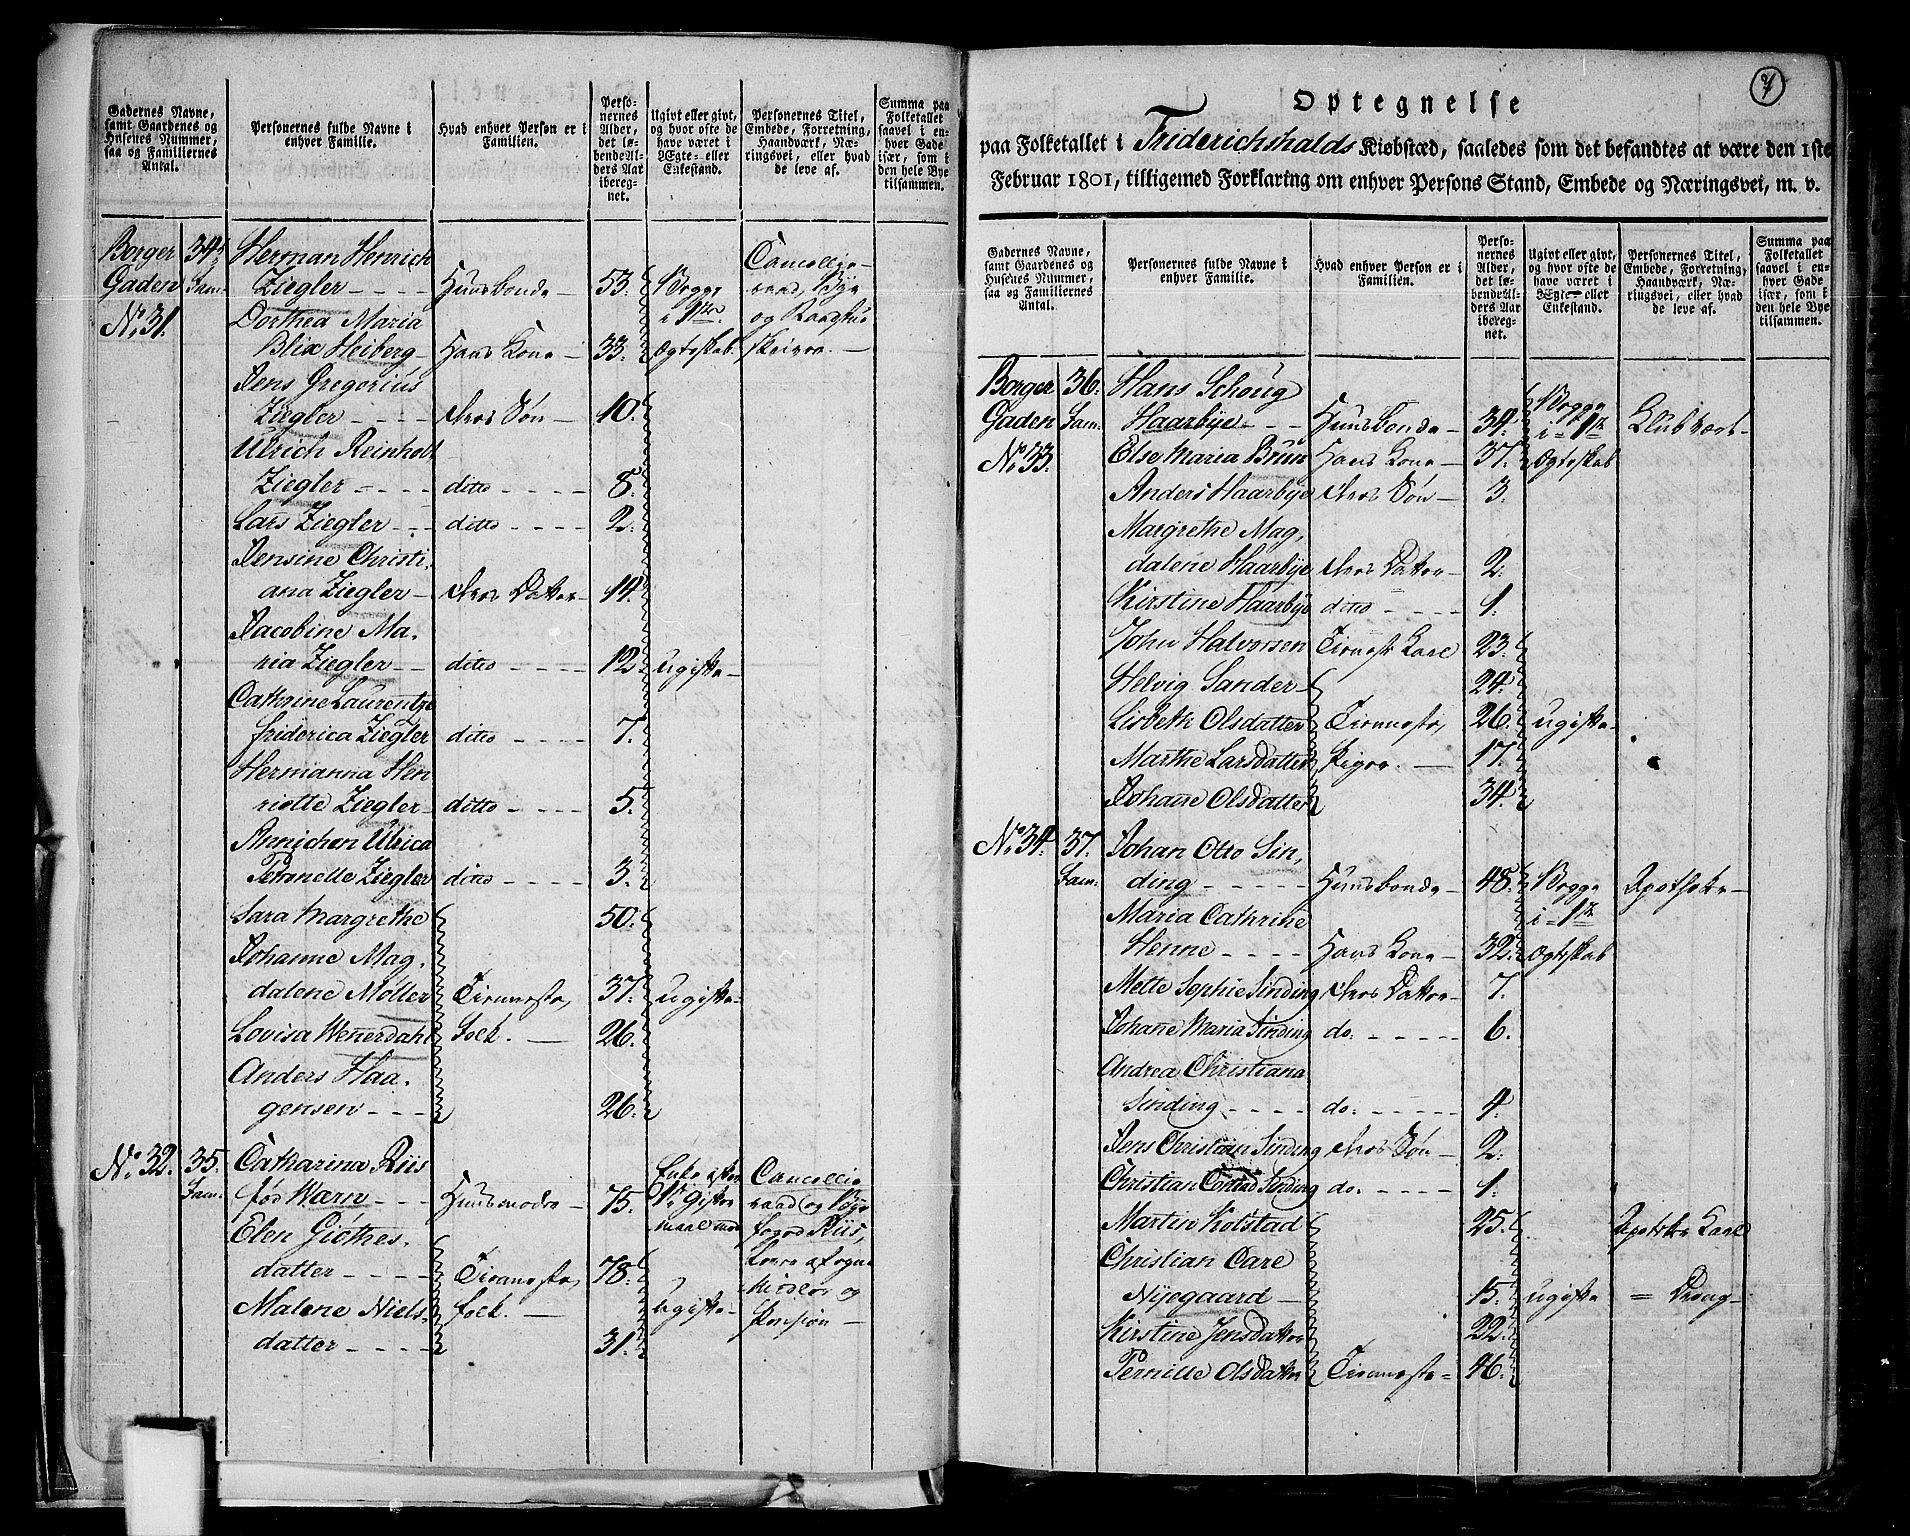 Gadernes Navne, samt Gaardenes og Husenes Nummer, saa og Familiernes Antal.
Personernes fulde Navne i enhver Familie.
Hvad enhver Person er i Familien.
Personernes Alder, det løbende Alders Aar iberegnet.
Ugivt eller givt, og hvor ofte de have været i Ægte- eller Enkestand.
Personernes Titel, Embede, Forretning, Haandværk, Næringsvei, eller hvad de leve af.
Summa paa Folketallet saavel i enhver Gade især, som i den hele Bye tilsammen.
Borger 34. Herman Henrich Cancellie-
Gaden Fam. Ziegler Huusbonde 53. Begge raad, Bye
No. 31. Dorthea Maria i 1te og Raadstue
Blix Heiberg Hans Kone 33. Ægteskab. skriver.
Jens Gregorius
Ziegler deres Søn 10.
Ulrich Reinholt
Ziegler ditto 8.
Lars Ziegler ditto 2.
Jensine Christi-
ana Ziegler deres Datter 14.
Jacobine Ma-
ria Ziegler ditto 12. ugifte
Cathrine Laurentze
friderica Ziegler ditto 7.
Hermanna Hen
riette Ziegler ditto 5.
Annichen Ulrica
Petronelle Ziegler ditto 3.
Sara Margrethe 50.
Johanne Mag-
dalene Møller Tieneste 37. ugifte
Lovisa Wenerdahl folk. 26.
Anders Haa-
gensen 26.
No. 32. 35. Catharina Riis Enke efter Cancellie
Fam. fød Wærn Huusmoder 75. raad og Bye
Elen Giøthes- foged Riis,
datter Tieneste 78. Lever af egne
Malene Niels- folk. ugifte Midler og
datter 31. Pension
7
Optegnelse
paa Folketallet i Friderichshalds Kiøbstæd, saaledes som det befandtes at være den 1ste
Februar 1801, tilligemed Forklaring om enhver Persons Stand, Embede og Næringsvei, m. v.
Gadernes Navne, samt Gaardenes og Husenes Nummer, saa og Familiernes Antal.
Personernes fulde Navne i enhver Familie.
Hvad enhver Person er i Familien.
Personernes Alder, det løbende Alders Aar iberegnet.
Ugivt eller givt, og hvor ofte de have været i Ægte- eller Enkestand.
Personernes Titel, Embede, Forretning, Haandværk, Næringsvei, eller hvad de leve af.
Summa paa Folketallet saavel i enhver Gade især, som i den hele Bye tilsammen.
Borger 36. Hans Schoug Begge
Gaden Fam. Haarbye Huusbonde 34. i 1te Klubvært
No. 33. Else Maria Brun Hans Kone 37. Ægteskab
Anders Haarbye deres Søn 3.
Margrethe Mag-
dalene Haarbye deres Datter 2.
Kirstine Haarbye ditto 1.
John Halvorsen Tieneste Karl 23.
Helvig Sander 24.
Lisbeth Olsdatter Tieneste 26. ugifte
Marthe Larsdatter Piger. 17.
Johanne Olsdatter 34.
No. 34. 37. Johan Otto Sin-
Fam. ding Huusbonde 48. Begge Apotheker
Maria Cathrine i 1te
Henne Hans Kone 32. Ægteskab
Mette Sophie Sinding deres Datter 7.
Johanne Maria Sinding do. 6.
Andrea Christiana
Sinding do. 4.
Jens Christian Sinding deres Søn 2.
Christian Conrad Sinding do. 1.
Martin Kolstad 25. Apotheker Karl
Christian Carl
Nijegaard 15. ugifte = Dreng
Kirstine Jensdatter 22.
Pernille Olsdatter Tieneste 46.